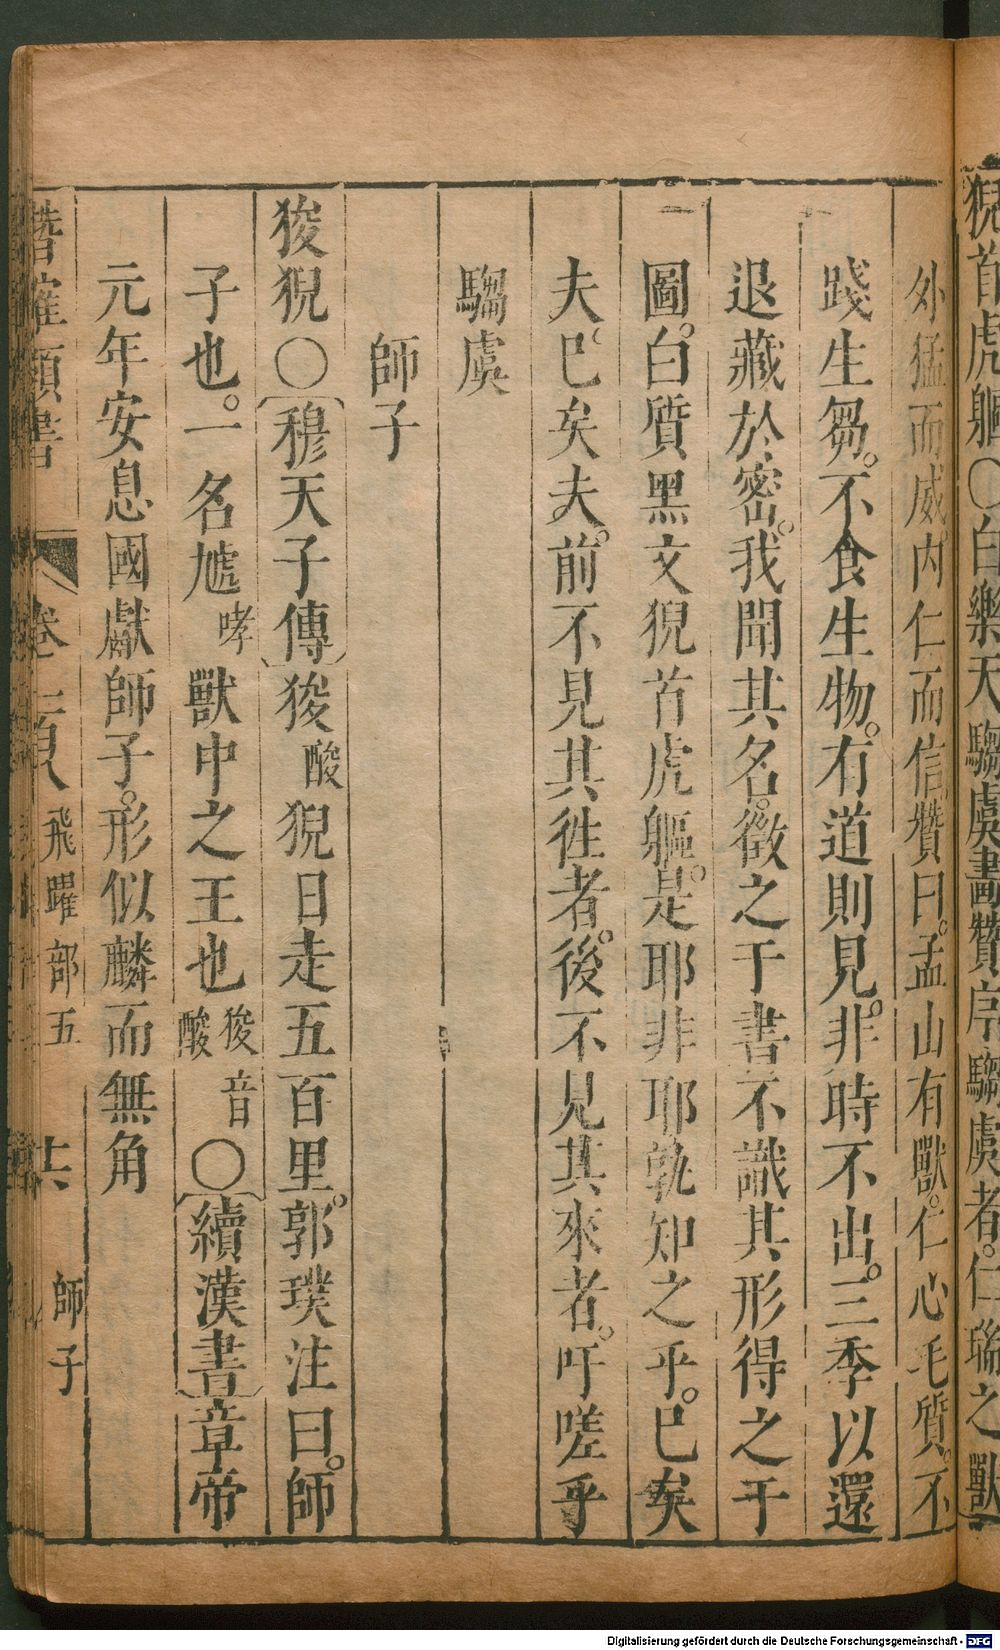 猊首虎軀〇白樂天騶虞畫贊序騶虞者仁瑞之獸
外猛而威内仁而信贊曰孟山有獸仁心毛質不
踐生芻不食生物有道則見非時不出三季以還
退藏於密我聞其名徵之于書不識其形得之于
圖白質黑文猊首虎軀是耶非耶孰知之乎已矣
夫已矣夫前不見其徃者後不見其來者吁嗟乎
騶虞
師子
狻猊〇穆天子傳狻酸猊日走五百里郭璞注曰師
子也一名虓哮獸中之王也狻音酸〇續漢書章帝
元年安息國獻師子形似麟而無角
潛確類書 卷一百八 飛躍部五 十六 師子
Digitalisierung gefördert durch die Deutsche Forschungsgemeinschaft - DFG